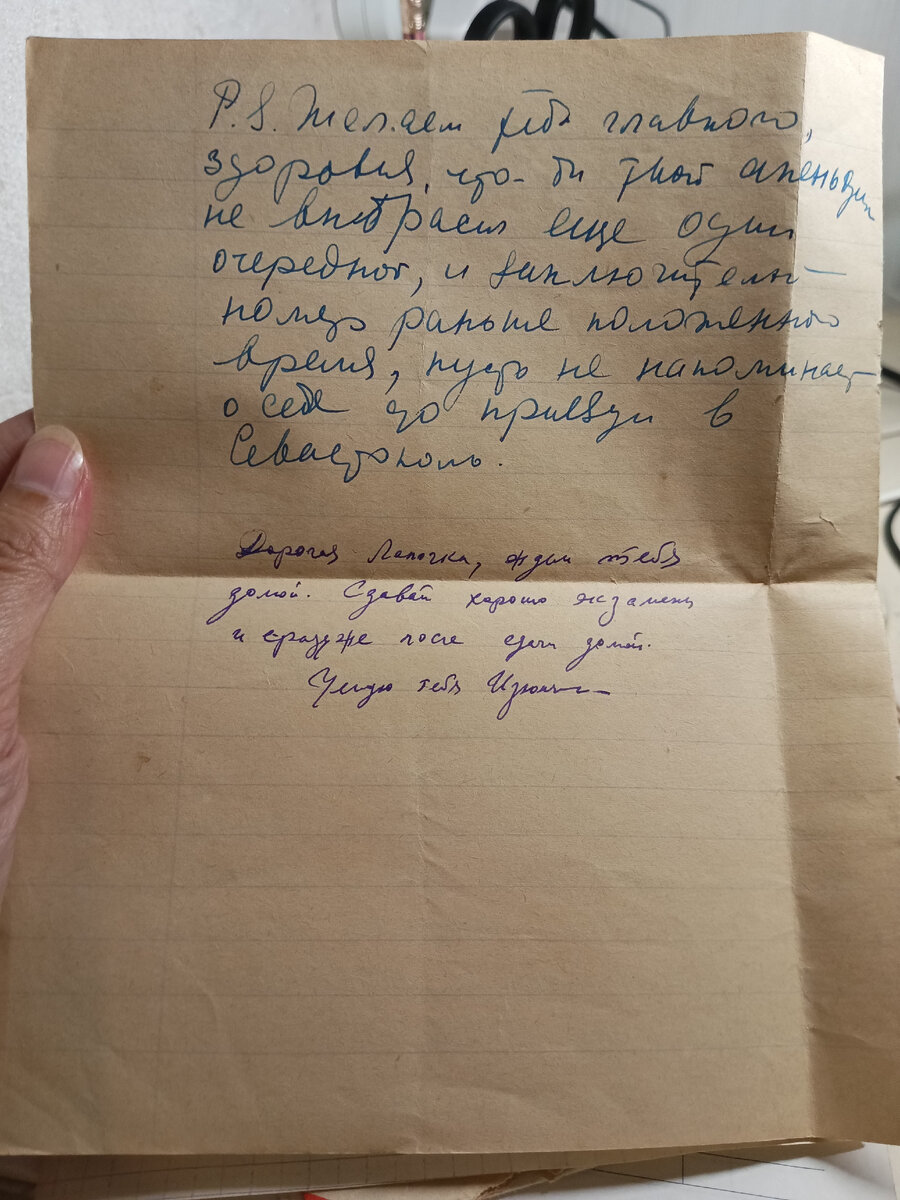 P.S. Желаем тебе главного,
здоровья, что-бы твой апендицит
не выбрасил еще один
очередной, и заключительный
номер раньше положенного
время, пусть не напоминает
о себе до приезда в
Севастополь.
Дорогая Лапочка, ждем тебя
домой. Сдавай хорошо экзамены
и сразу же после сдачи домой.
Целую тебя